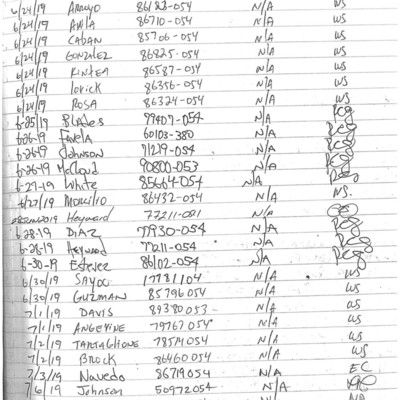 6/24/19 Araujo 86183-054 N/A WS
6/24/19 AVILA 86710-054 N/A WS
6/24/19 CABAN 85706-054 N/A WS
6/24/19 GONZALEZ 86825-054 N/A WS
6/24/19 86587-054 N/A WS
6/24/19 Lorick 86356-054 N/A WS
6/24/19 ROSA 86324-054 N/A WS
6-25-19 BLADES 79407-054 N/A
6-26-19 Favela 60103-380 N/A
6-26-19 Johnson 71219-054 N/A
6-26-19 McCloud 90800-053 N/A
6-27-19 White 85664-054 N/A
6/27/19 86432-054 N/A WS.
Heyward 77211-081 N/A
6-28-19 DIAZ 77930-054 N/A
6-28-19 Heyward 77211-054 N/A
6-30-19 Estevez 86102-054 N/A
6/30/19 SAYOC 17781104 N/A WS
6/30/19 GUZMAN 85796054 N/A WS
7/1/19 DAVIS 89380053 N/A WS
7/1/19 ANGEVINE 79767054 N/A WS
7/2/19 TARTAGLIONE 78514054 N/A WS
7/2/19 BROCK 86460054 N/A WS
7/3/19 Navedo 86719054 N/A EC
7/6/19 Johnson 50972054 N/A